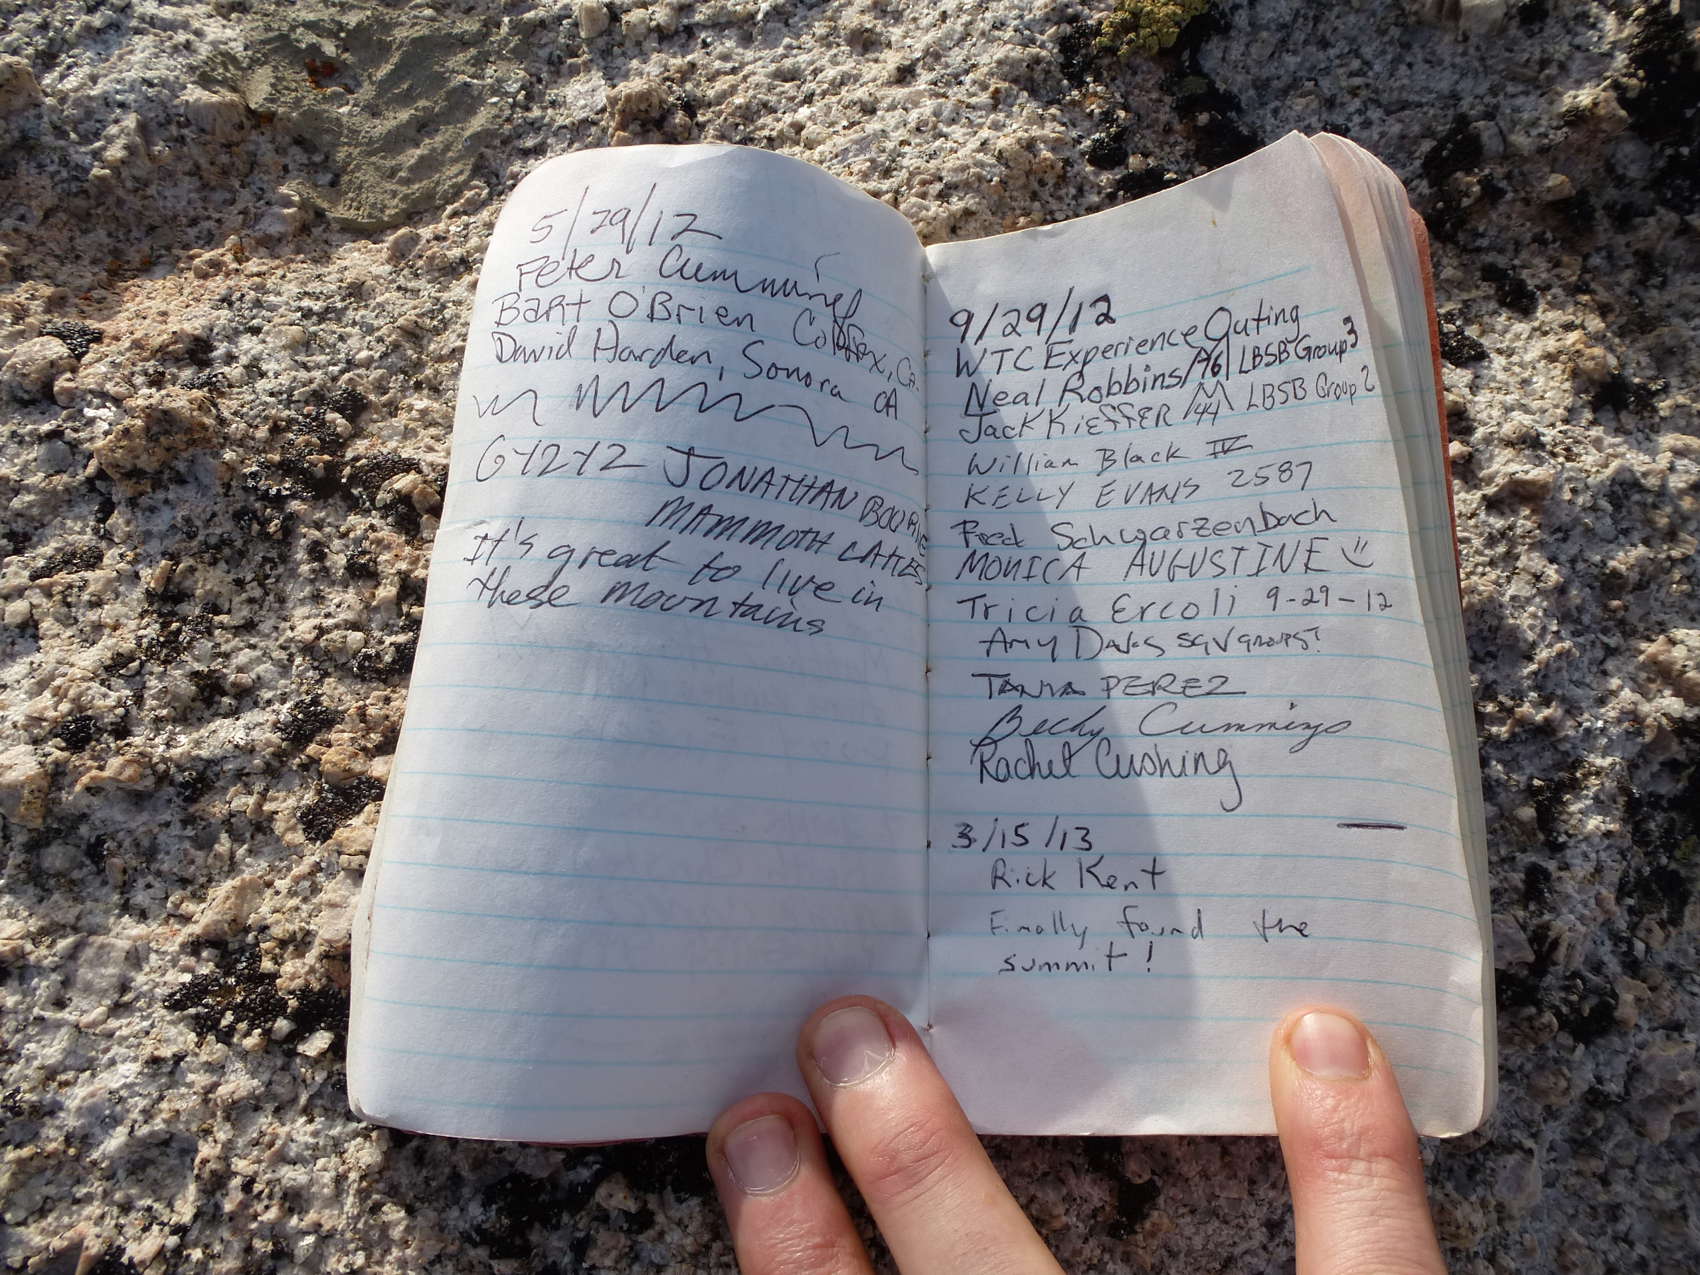 5/29/12
Peter Cummings
Bart O'Brien Colfax, CA.
David Harden, Sonora CA
6/12/12 JONATHAN BOURNE
MAMMOTH LAKES
It's great to live in
these mountains
9/29/12
WTC Experience Outing
Neal Robbins /76\ LBSB Group 3
Jack Kieffer /44\ LBSB Group 2
William Black IV
KELLY EVANS 2587
Fred Schwarzenbach
MONICA AUGUSTINE
Tricia Ercoli 9-29-12
Amy SGV
TANYA PEREZ
Becky Cummings
Rachel Cushing
3/15/13
Rick Kent
Finally found the
summit!